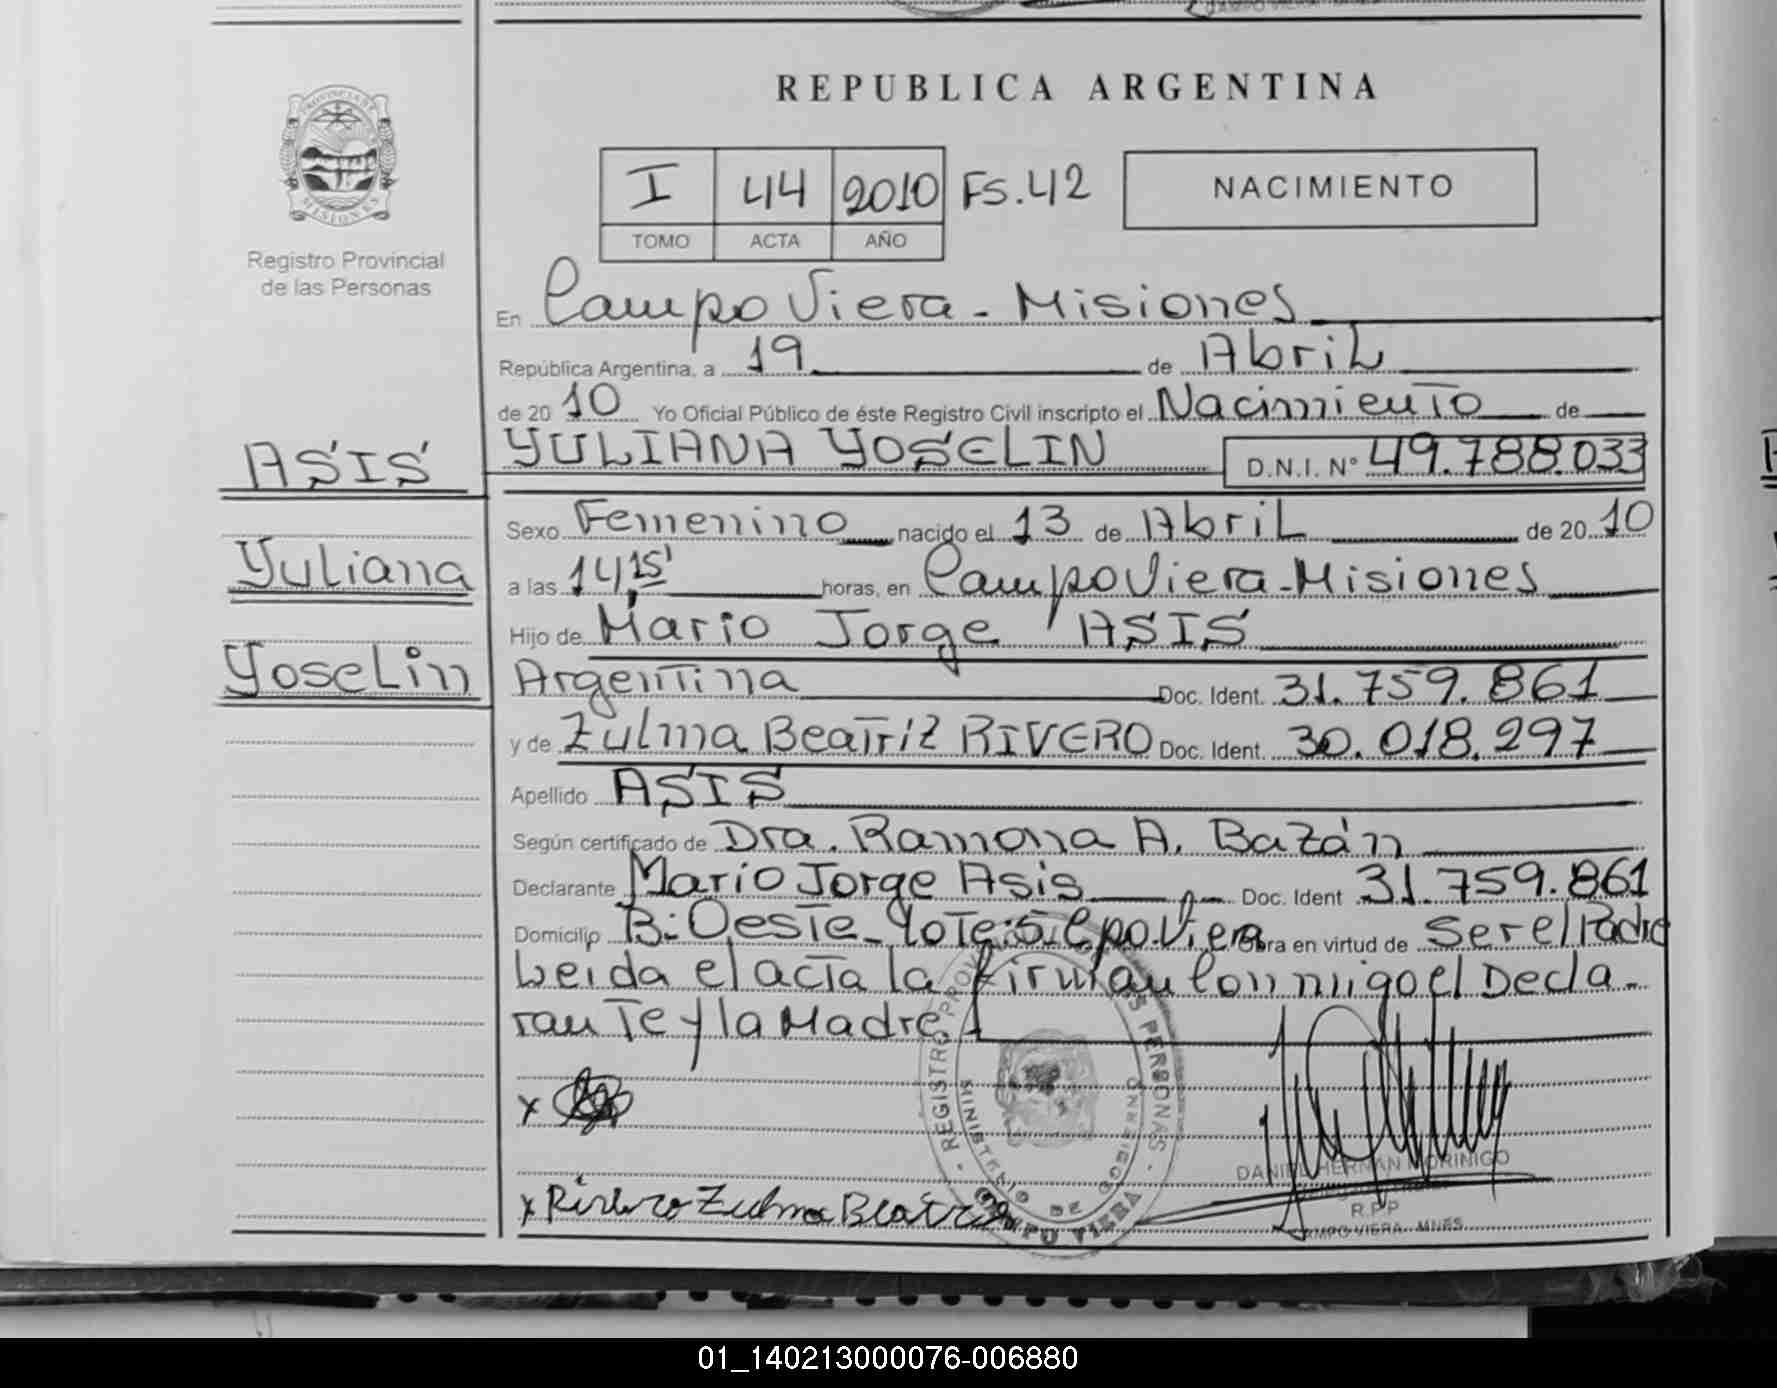 REPUBLICA ARGENTINA
I 44 2010 FS.42 NACIMIENTO
TOMO ACTA AÑO
PROVINCIA DE MISIONES
Registro Provincial
de las Personas
En Campo Viera - Misiones
República Argentina, a 19 de Abril
de 20 10 Yo Oficial Público de éste Registro Civil inscripto el Nacimiento de
ASIS
Yuliana
Yoselin
YULIANA YOSELIN D.N.I. N° 49.788.033
Sexo Femenino nacido el 13 de Abril de 20 10
a las 14,15' horas, en Campo Viera - Misiones
Hijo de Mario Jorge ASIS
Argentina Doc. Ident. 31.759.861
y de Zulma Beatriz RIVERO Doc. Ident. 30.018.297
Apellido ASIS
Según certificado de Dra. Ramona A. Bazán
Declarante Mario Jorge Asis Doc. Ident 31.759.861
Domicilio B: Oeste - Lote:5. Cpo. Viera Obra en virtud de Ser el Padre
Leida el acta la firman Conmigo el Decla-
rante y la Madre
REGISTRO PROVINCIAL DE LAS PERSONAS
MINISTERIO DE GOBIERNO
CAMPO VIERA
x
x Rivero Zulma Beatriz
DANIEL HERNAN MORINIGO
R.P.P
CAMPO VIERA - MNES
01_140213000076-006880